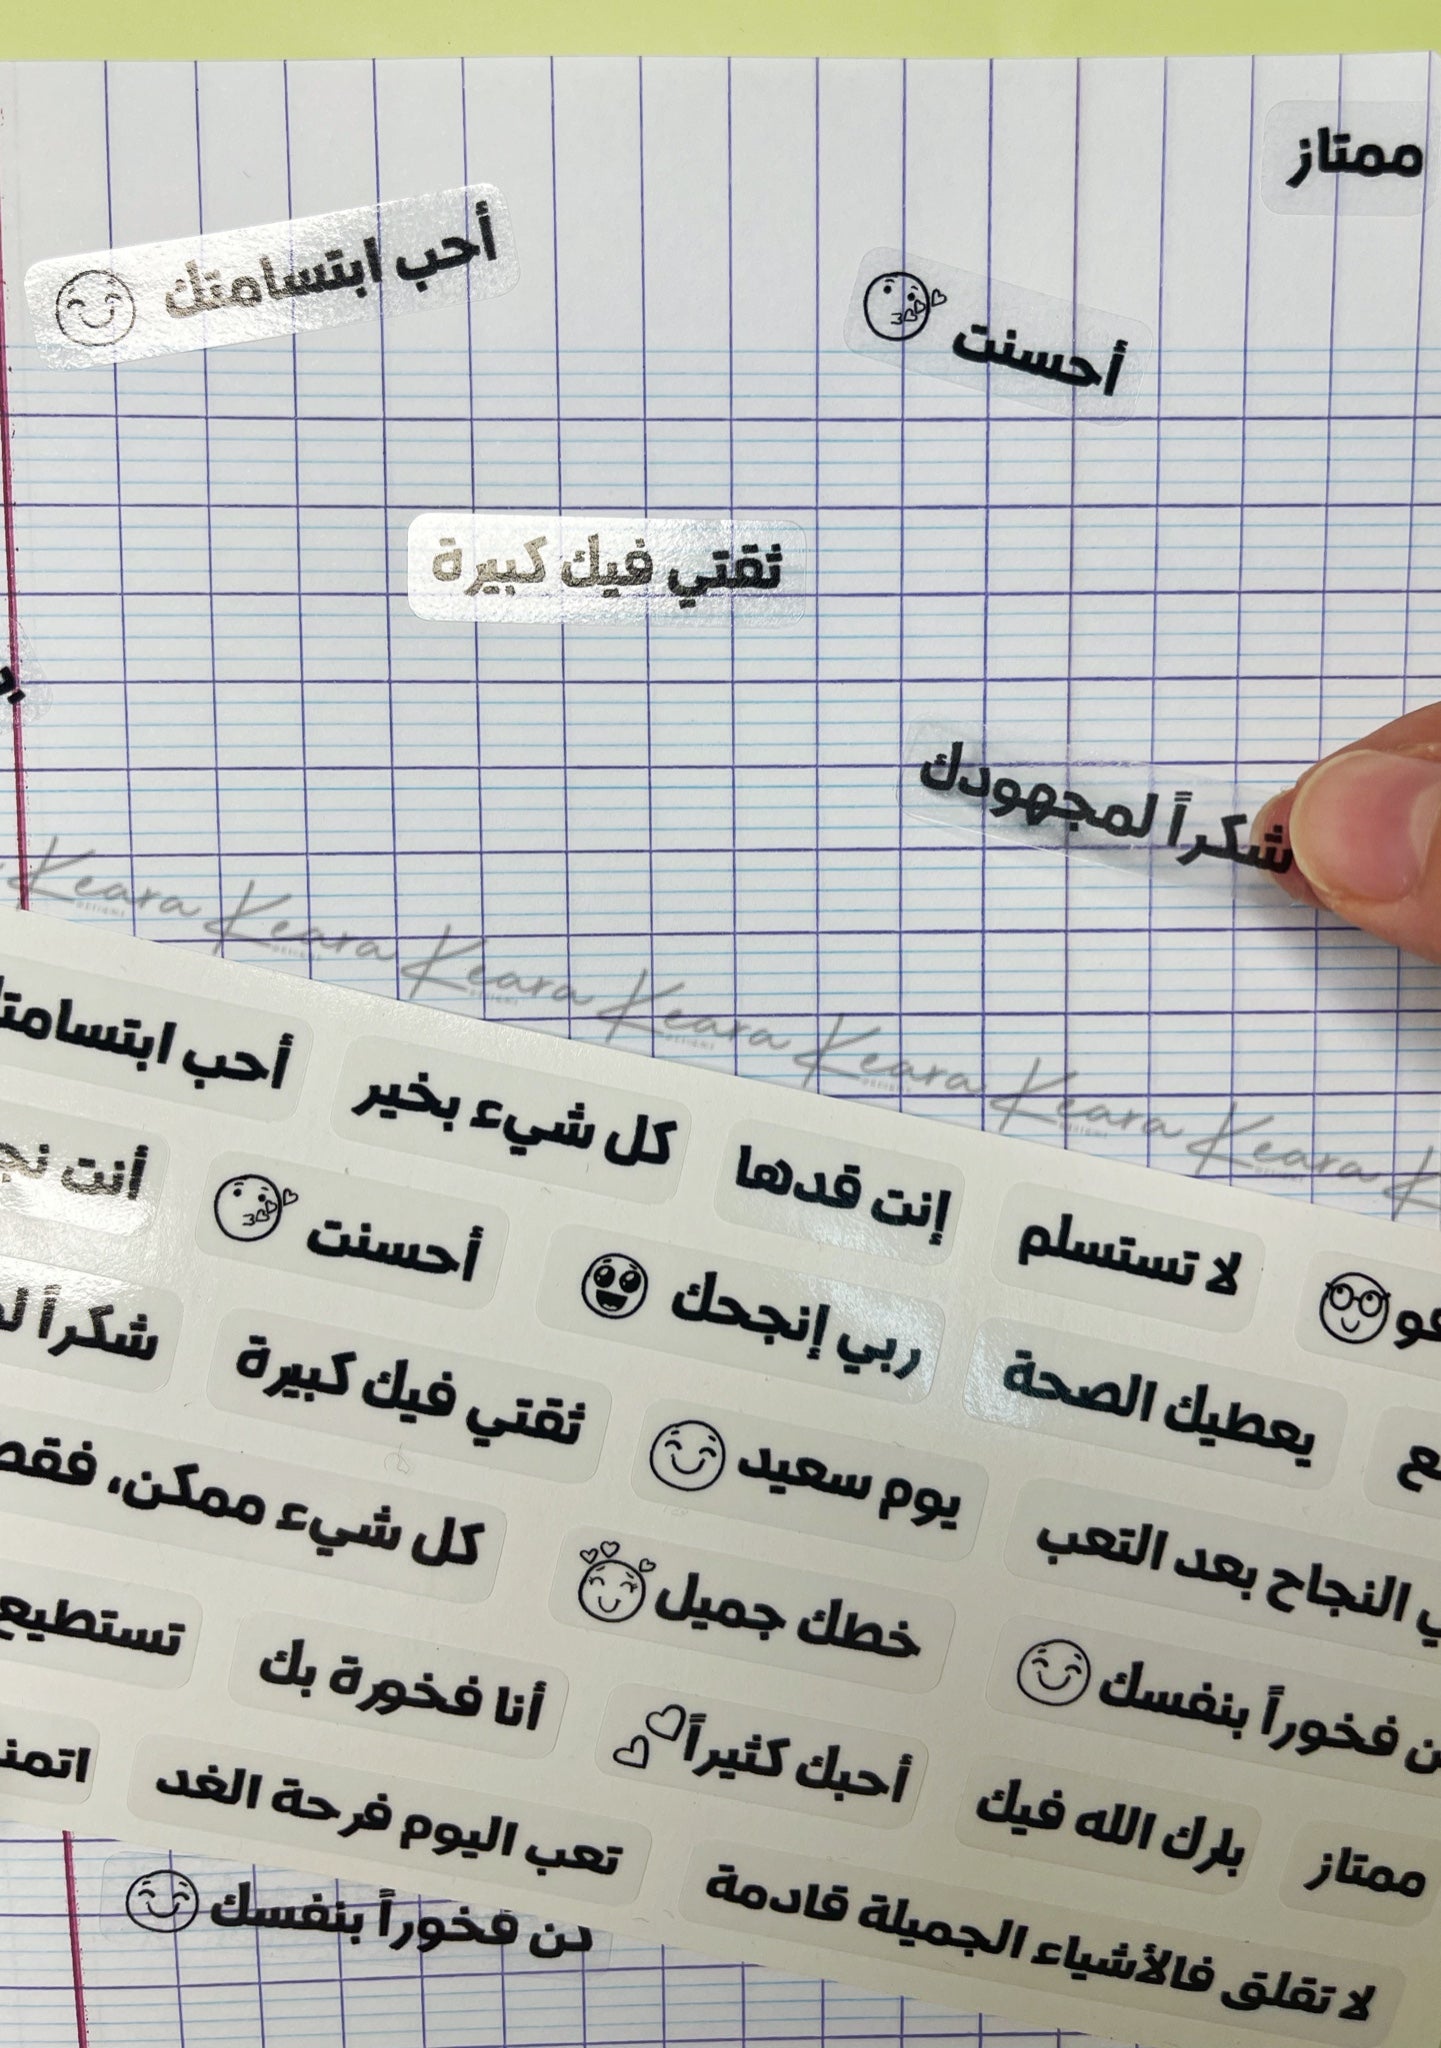 ممتاز
أحب ابتسامتك
أحسنت
ثقتي فيك كبيرة
شكراً لمجهودك
Keara Keara Keara Keara Keara Keara Keara
أحب ابتسامتك
كل شيء بخير
إنت قدها
لا تستسلم
أنت
أحسنت
ربي إنجحك
يعطيك الصحة
شكراً
ثقتي فيك كبيرة
يوم سعيد
النجاح بعد التعب
كل شيء ممكن، فقط
خطك جميل
فخوراً بنفسك
تستطيع
أنا فخورة بك
أحبك كثيراً
بارك الله فيك
ممتاز
تعب اليوم فرحة الغد
لا تقلق فالأشياء الجميلة قادمة
كن فخوراً بنفسك